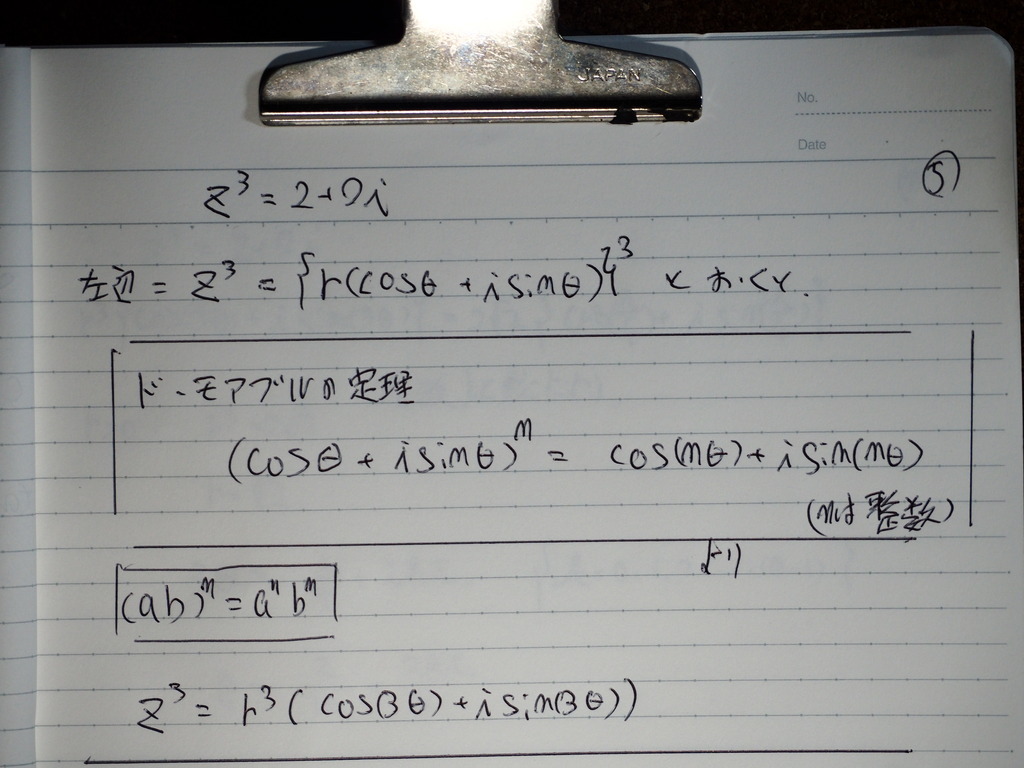 JAPAN
No.
Date
⑤
z³ = 2+0i
左辺 = z³ = {r(cosθ + i sinθ)}³ とおくと.
ド・モアブルの定理
(cosθ + i sinθ)ⁿ = cos(nθ) + i sin(nθ)
(nは整数)
より
(ab)ⁿ = aⁿbⁿ
z³ = r³(cos(3θ) + i sin(3θ))